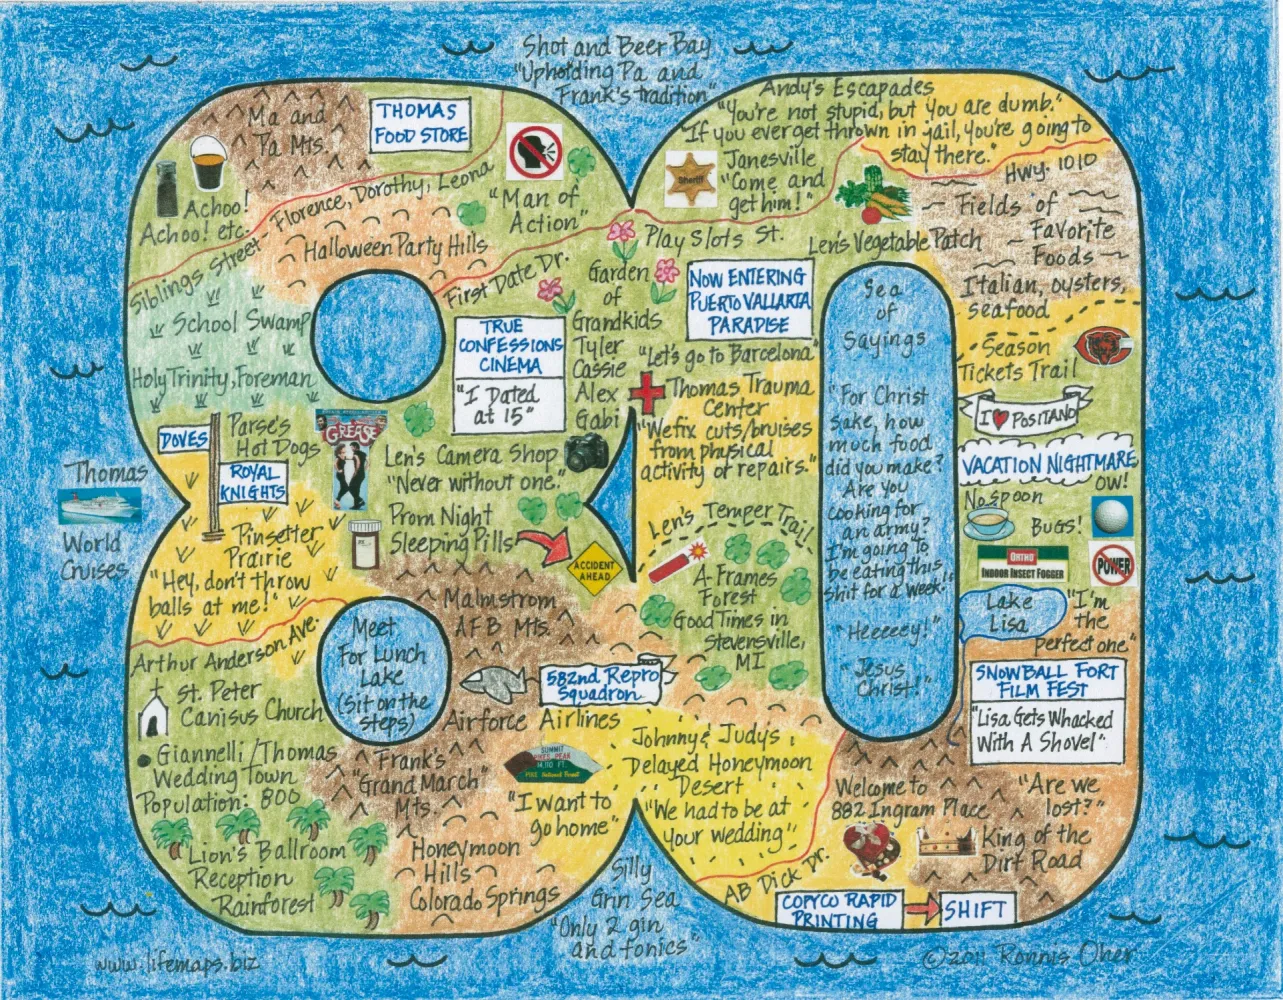 Shot and Beer Bay
"Upholding Pa and
Frank's tradition"
Ma and
Pa Mts.
THOMAS
FOOD STORE
Achoo!
Achoo! etc.
Siblings Street - Florence, Dorothy, Leona
"Man of
Action"
Halloween Party Hills
First Date Dr.
Andy's Escapades
"You're not stupid, but you are dumb."
"If you ever get thrown in jail, you're going to
stay there."
Sheriff
Janesville
"Come and
get him!"
Hwy. 1010
Play Slots St.
Len's Vegetable Patch
Fields of
Favorite
Foods
Italian, oysters,
seafood
School Swamp
Holy Trinity, Foreman
TRUE
CONFESSIONS
CINEMA
"I Dated
at 15"
Garden
of
Grandkids
Tyler
Cassie
Alex
Gabi
NOW ENTERING
PUERTO VALLARTA
PARADISE
"Let's go to Barcelona"
Thomas Trauma
Center
"We fix cuts/bruises
from physical
activity or repairs."
Sea
of
Sayings
"For Christ
sake, how
much food
did you make?
Are you
cooking for
an army?
I'm going to
be eating this
shit for a week."
"Heeeeey!"
"Jesus
Christ!"
Season
Tickets Trail
I ♥ POSITANO
VACATION NIGHTMARE
OW!
No spoon
BUGS!
ORTHO
INDOOR INSECT FOGGER
POWER
Lake
Lisa
"I'm
the
perfect one"
SNOWBALL FORT
FILM FEST
"Lisa Gets Whacked
With A Shovel"
DOVES
ROYAL
KNIGHTS
Parse's
Hot Dogs
GREASE
Len's Camera Shop
"Never without one."
Prom Night
Sleeping Pills
ACCIDENT
AHEAD
Len's Temper Trail
A-Frames
Forest
Good Times in
Stevensville,
MI
Thomas
World
Cruises
Pinsetter
Prairie
"Hey, don't throw
balls at me!"
Arthur Anderson Ave.
Meet
For Lunch
Lake
(Sit on the
steps)
Malmstrom
AFB Mts.
582nd Repro
Squadron
Airforce Airlines
St. Peter
Canisus Church
Giannelli/Thomas
Wedding Town
Population: 800
Frank's
"Grand March"
Mts.
SUMMIT
PIKES PEAK
14,110 FT.
"I want to
go home"
Johnny & Judy's
Delayed Honeymoon
Desert
"We had to be at
your wedding"
Welcome to
882 Ingram Place
"Are we
lost?"
King of the
Dirt Road
AB Dick Dr.
COPYCO RAPID
PRINTING
SHIFT
Lion's Ballroom
Reception
Rainforest
Honeymoon
Hills
Colorado Springs
Silly
Grin Sea
"Only 2 gin
and tonics"
www.lifemaps.biz
©2011 Ronnis Oher